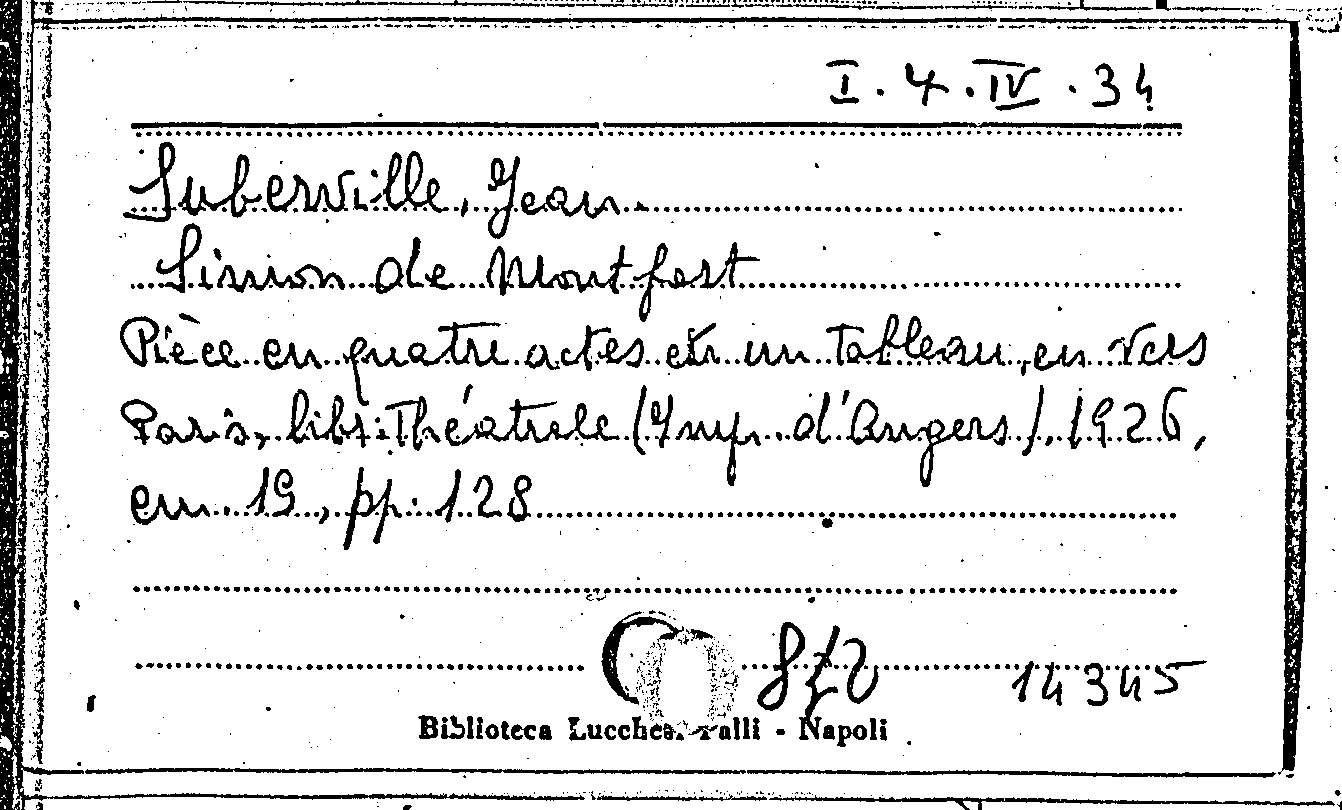 I. 4. IV. 34
Suberville, Jean.
Simon de Montfort
Pièce en quatre actes et un tableau, en vers
Paris, libr. Théatrale (Imp. d'Angers), 1926,
cm. 19, pp. 128
14345
Biblioteca Lucchesi Palli - Napoli